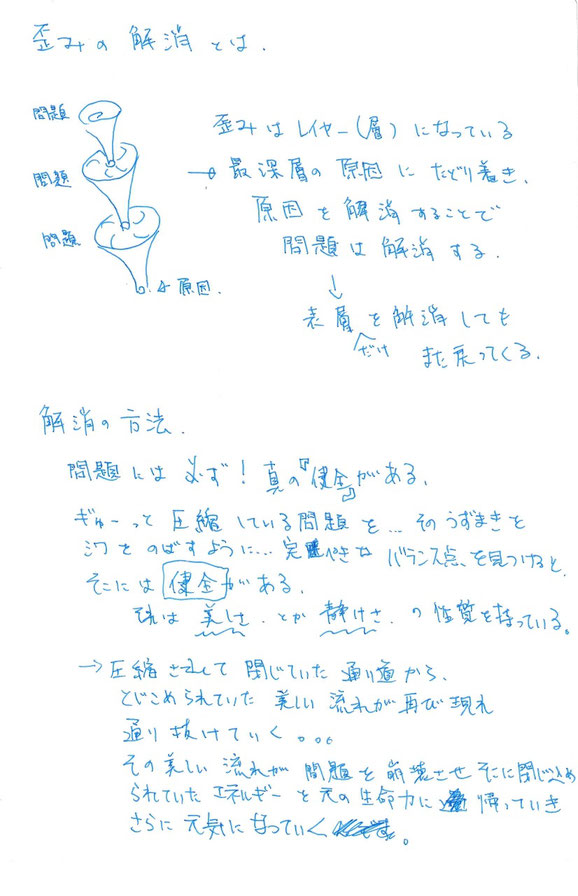 歪みの解消とは.
問題
問題
問題
←原因.
歪みはレイヤー(層)になっている
→最深層の原因にたどり着き.
原因を解消することで
問題は解消する.
↓
表層だけを解消しても
また戻ってくる.
解消の方法.
問題には必ず!真の『健全』がある.
ぎゅーっと圧縮している問題を…そのうずまきを
シワをのばすように…完ぺきなバランス点、を見つけると.
そこには健全がある.
それは美しさ.とか静けさ.の性質を持っている。
→圧縮されて閉じていた通り道から.
とじこめられていた美しい流れが再び現れ
通り抜けていく。。。
その美しい流れが問題を崩壊させそこに閉じ込め
られていたエネルギーと元の生命力に帰っていき
さらに元気になっていく。